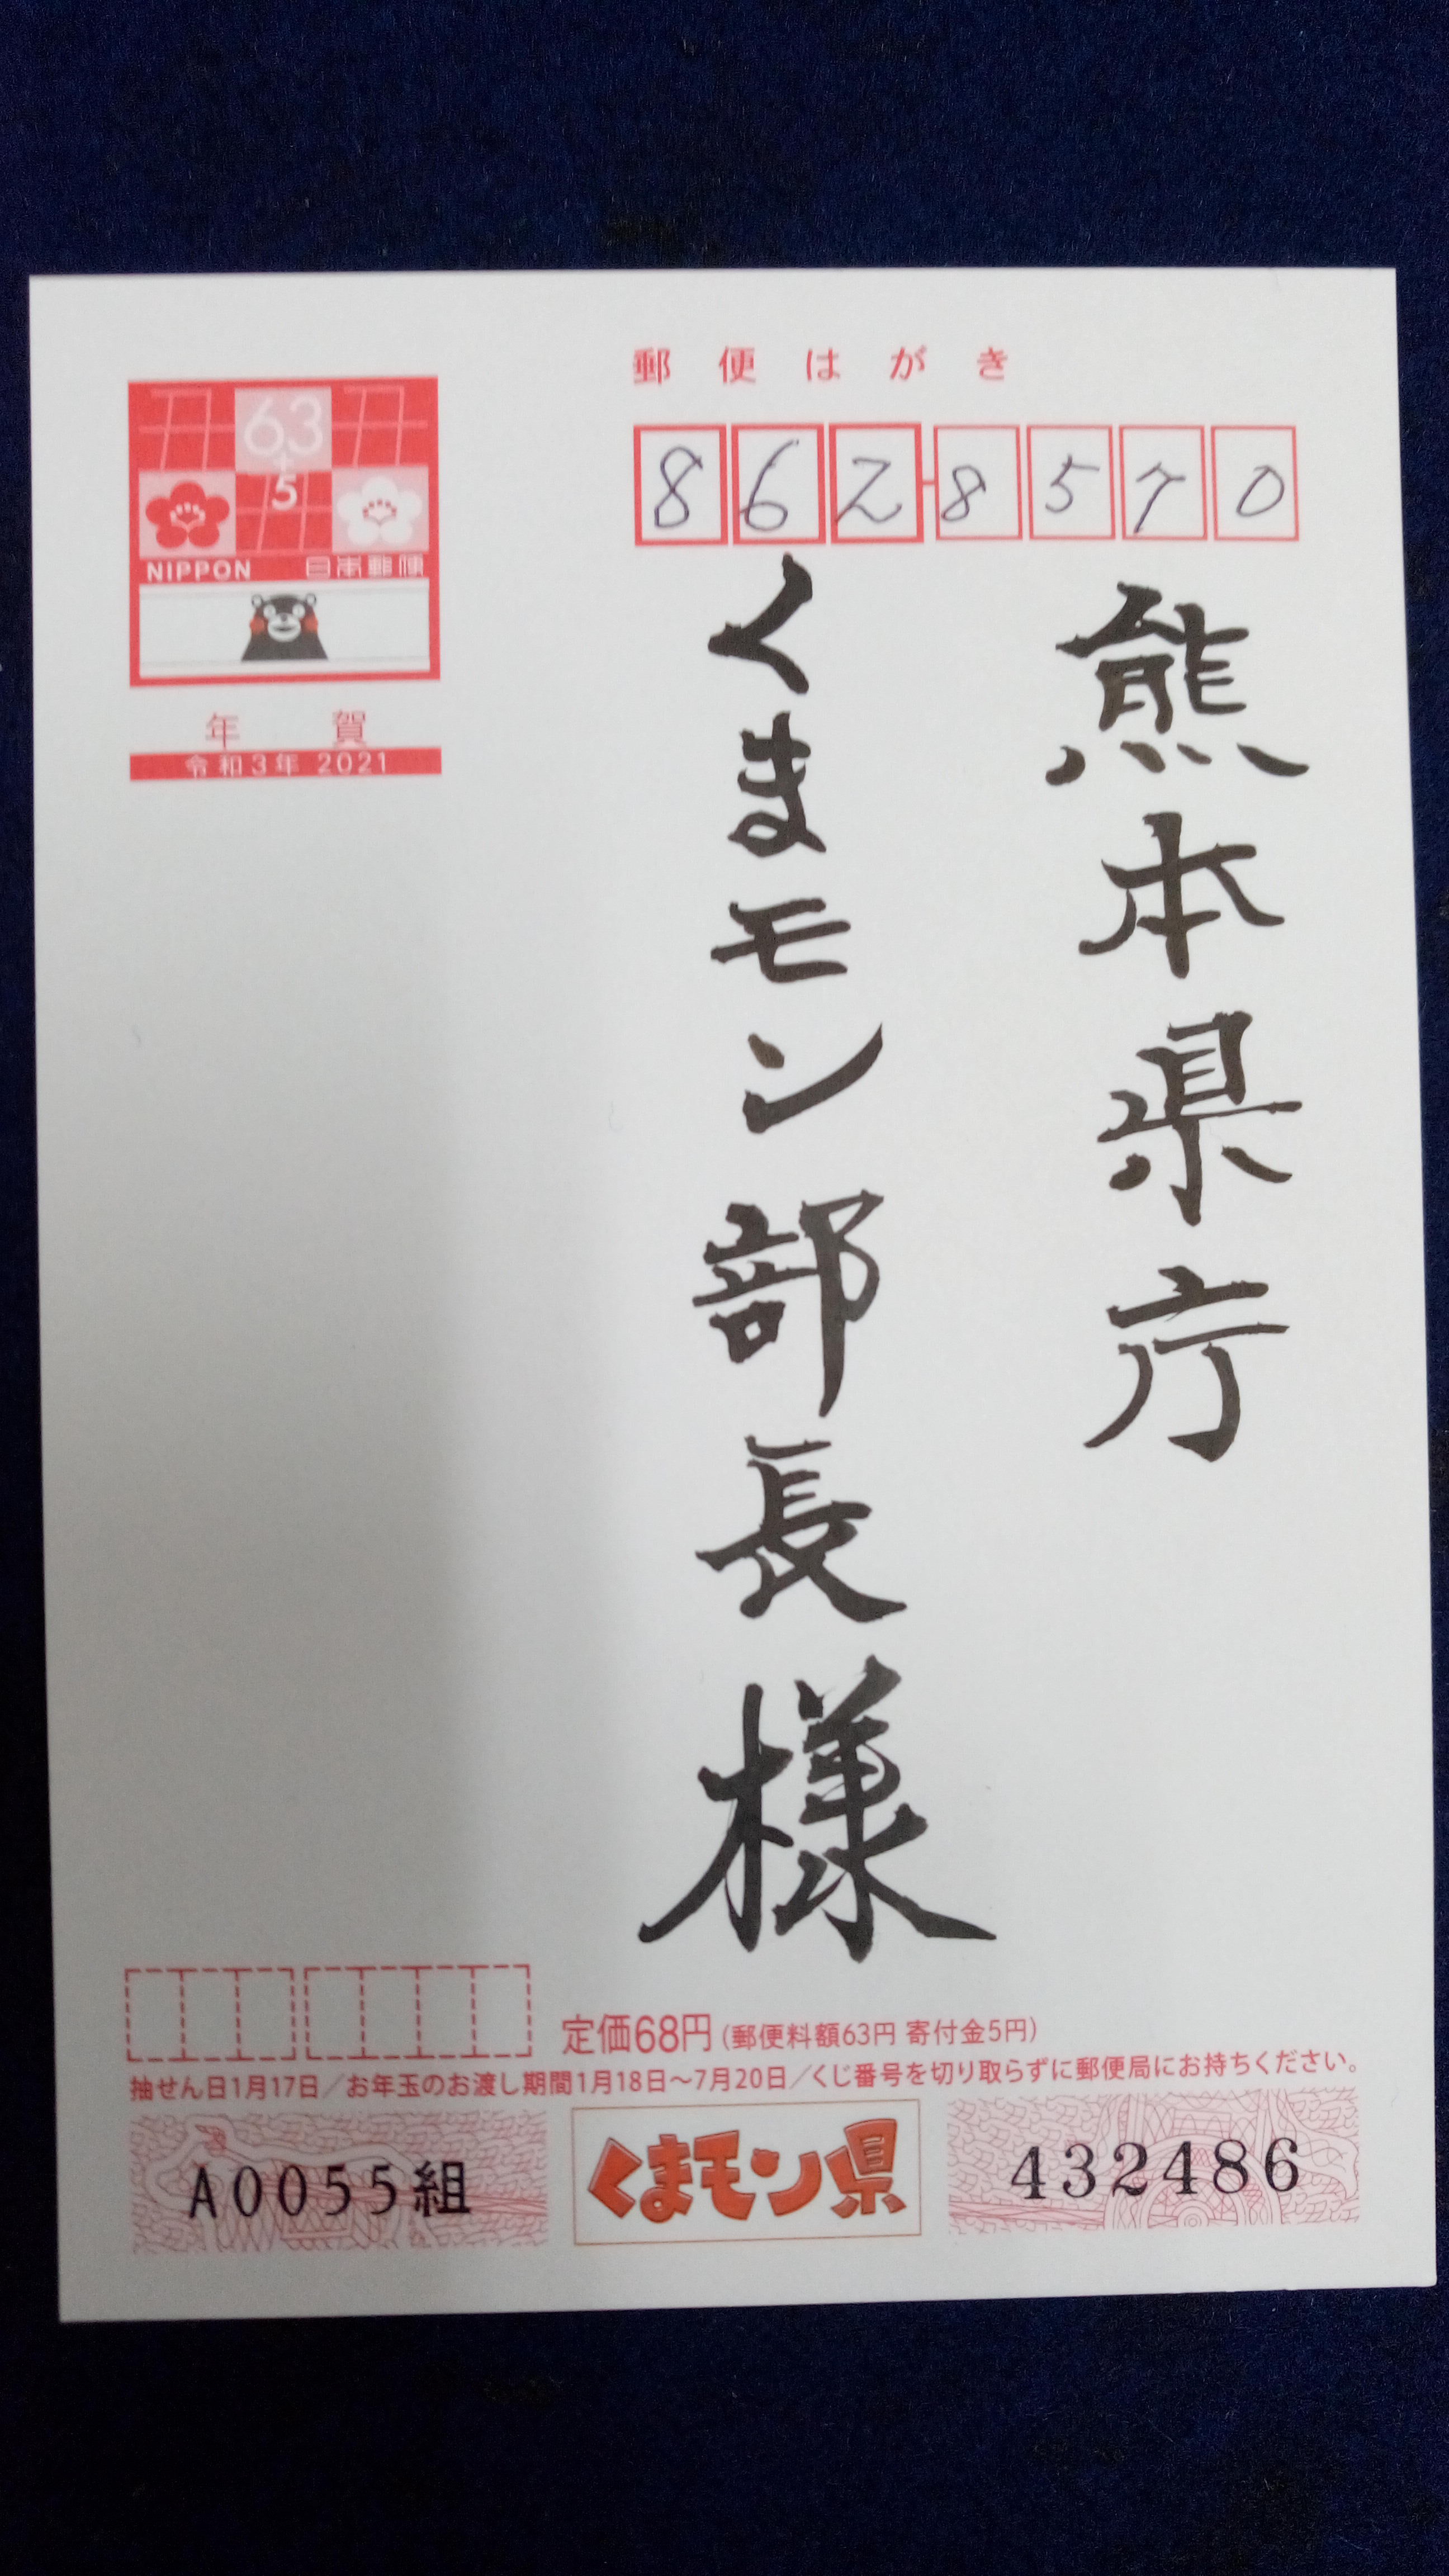 郵便はがき
862-8570
熊本県庁
くまモン部長様
63
+
5
NIPPON 日本郵便
年賀
令和3年 2021
定価68円(郵便料額63円 寄付金5円)
抽せん日1月17日/お年玉のお渡し期間1月18日~7月20日/くじ番号を切り取らずに郵便局にお持ちください。
A0055組 くまモン県 432486